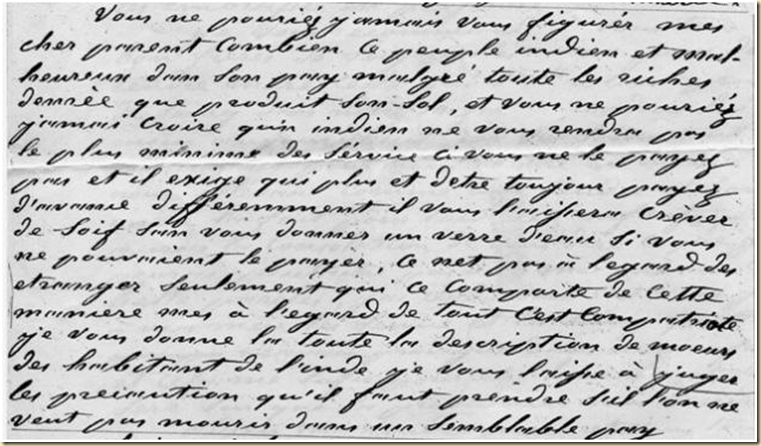 Vous ne pouriéz jamais vous figurér mes
cher parent combien ce peuple indien et mal-
heureux dan son pay malgré toute les riches
denrèe que produit son sol, et vous ne pouriéz
jamai croire qu'in indien ne vous rendra pas
le plus minime des sérvice ci vous ne le payez
pas et il exige qui plus et detre toujour payez
d'avance differemment il vous laissera crèver
de soif san vous donner un verre d'eau si vous
ne pouvaient le payér, ce net pas à legard des
etranger seulement qui ce comporte de cette
maniere mes à l'egard de tout c'est compatriote
je vous donne la toute la description de moeurs
des habitant de l'inde je vous laisse à juger
les precaution qu'il faut prendre si l'on ne
veut pas mourir dans un semblable pay